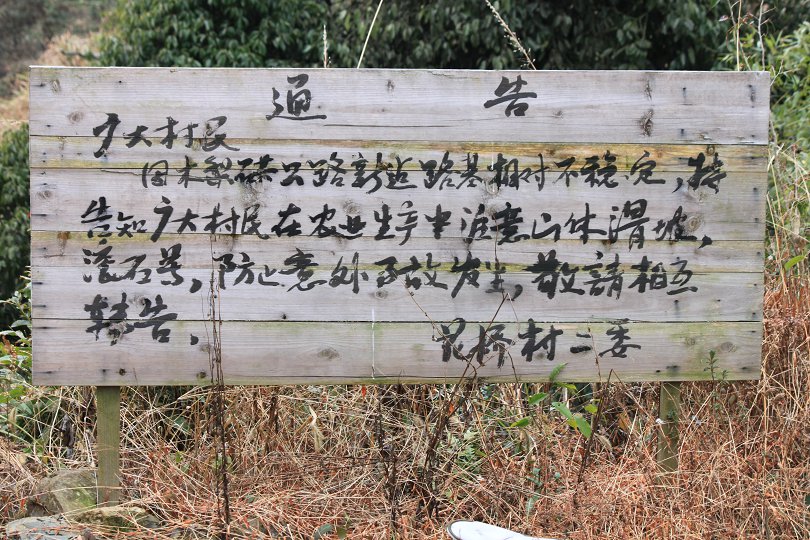 通告
广大村民
因木梨硔公路新边路基相对不稳定，特
告知广大村民在农业生产中注意山体滑坡，
滚石等，防止意外事故发生，敬請相互
转告，
坪村二委